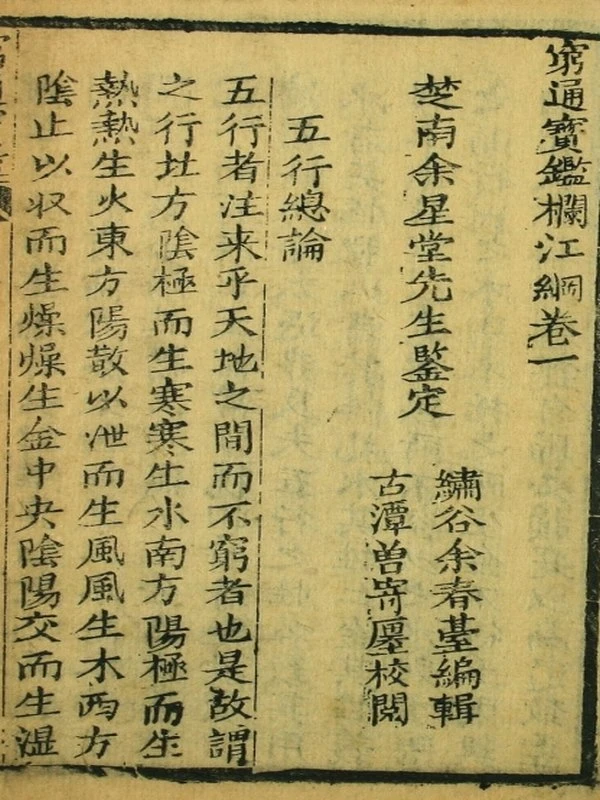 窮通寶鑑欄江綱卷一
楚南余星堂先生鑒定
繡谷余春臺編輯
古潭曽寄㕓校閱
五行總論
五行者注来乎天地之間而不窮者也是故謂
之行北方陰極而生寒寒生水南方陽極而生
熱熱生火東方陽散以泄而生風風生木西方
陰止以収而生燥燥生金中央陰陽交而生濕